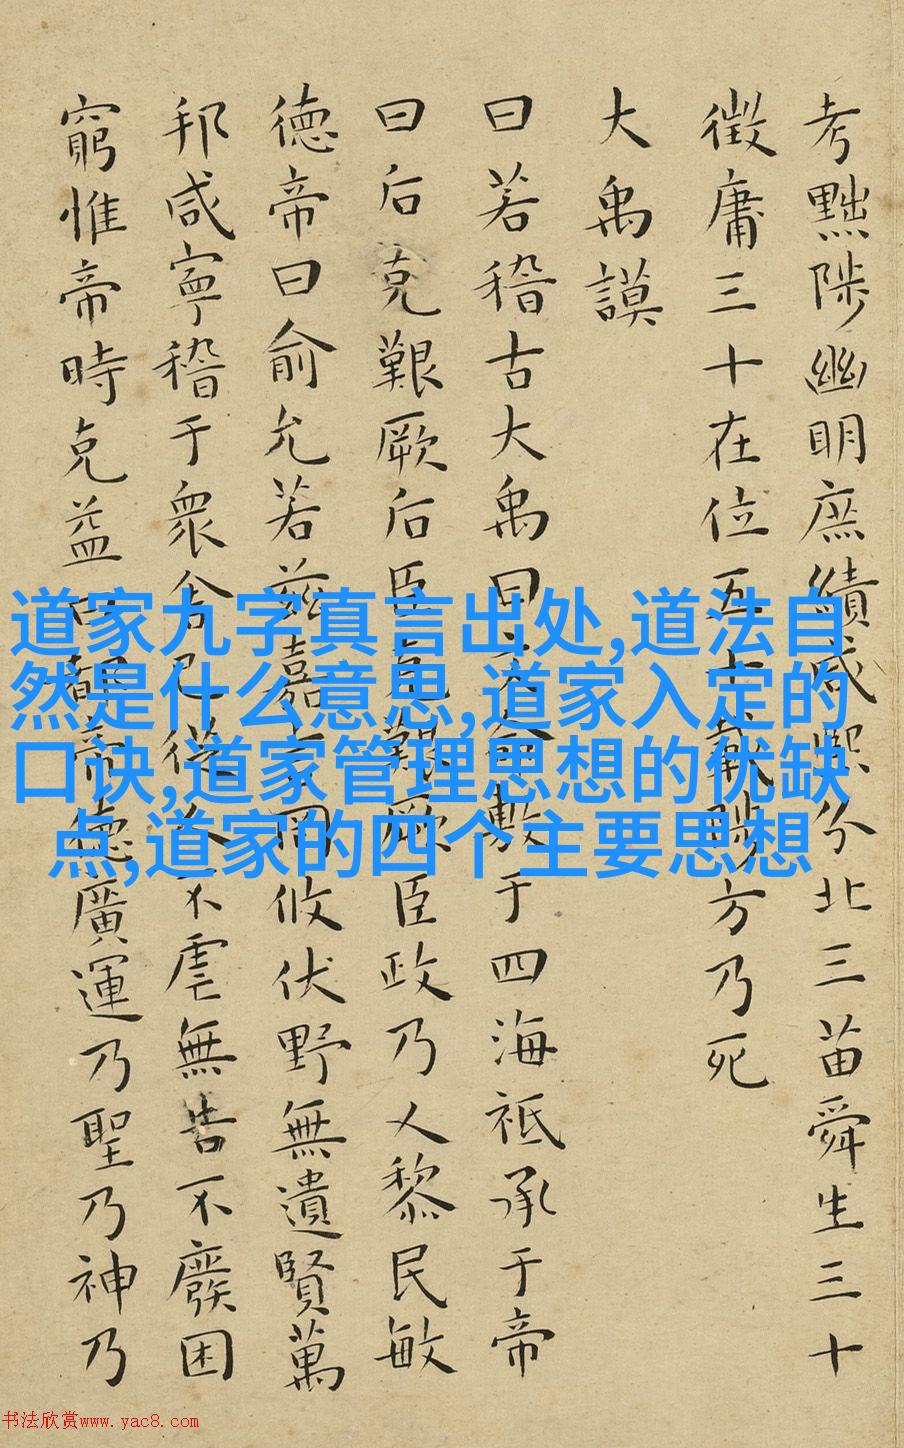 考黜陟幽明庶績咸熙分北三苗舜生三十
徵庸三十在位五十載陟方乃死
大禹謨
曰若稽古大禹曰文命敷于四海祗承于帝
曰后克艱厥后臣克艱厥臣政乃乂黎民敏
德帝曰俞允若茲嘉言罔攸伏野無遺賢萬
邦咸寧稽于衆舍己從人不虐無告不廢困
窮惟帝時克益曰都帝德廣運乃聖乃神乃
道家九字真言出处,道法自
然是什么意思,道家入定的
口诀,道家管理思想的优缺
点,道家的四个主要思想
书法欣赏www.yac8.com